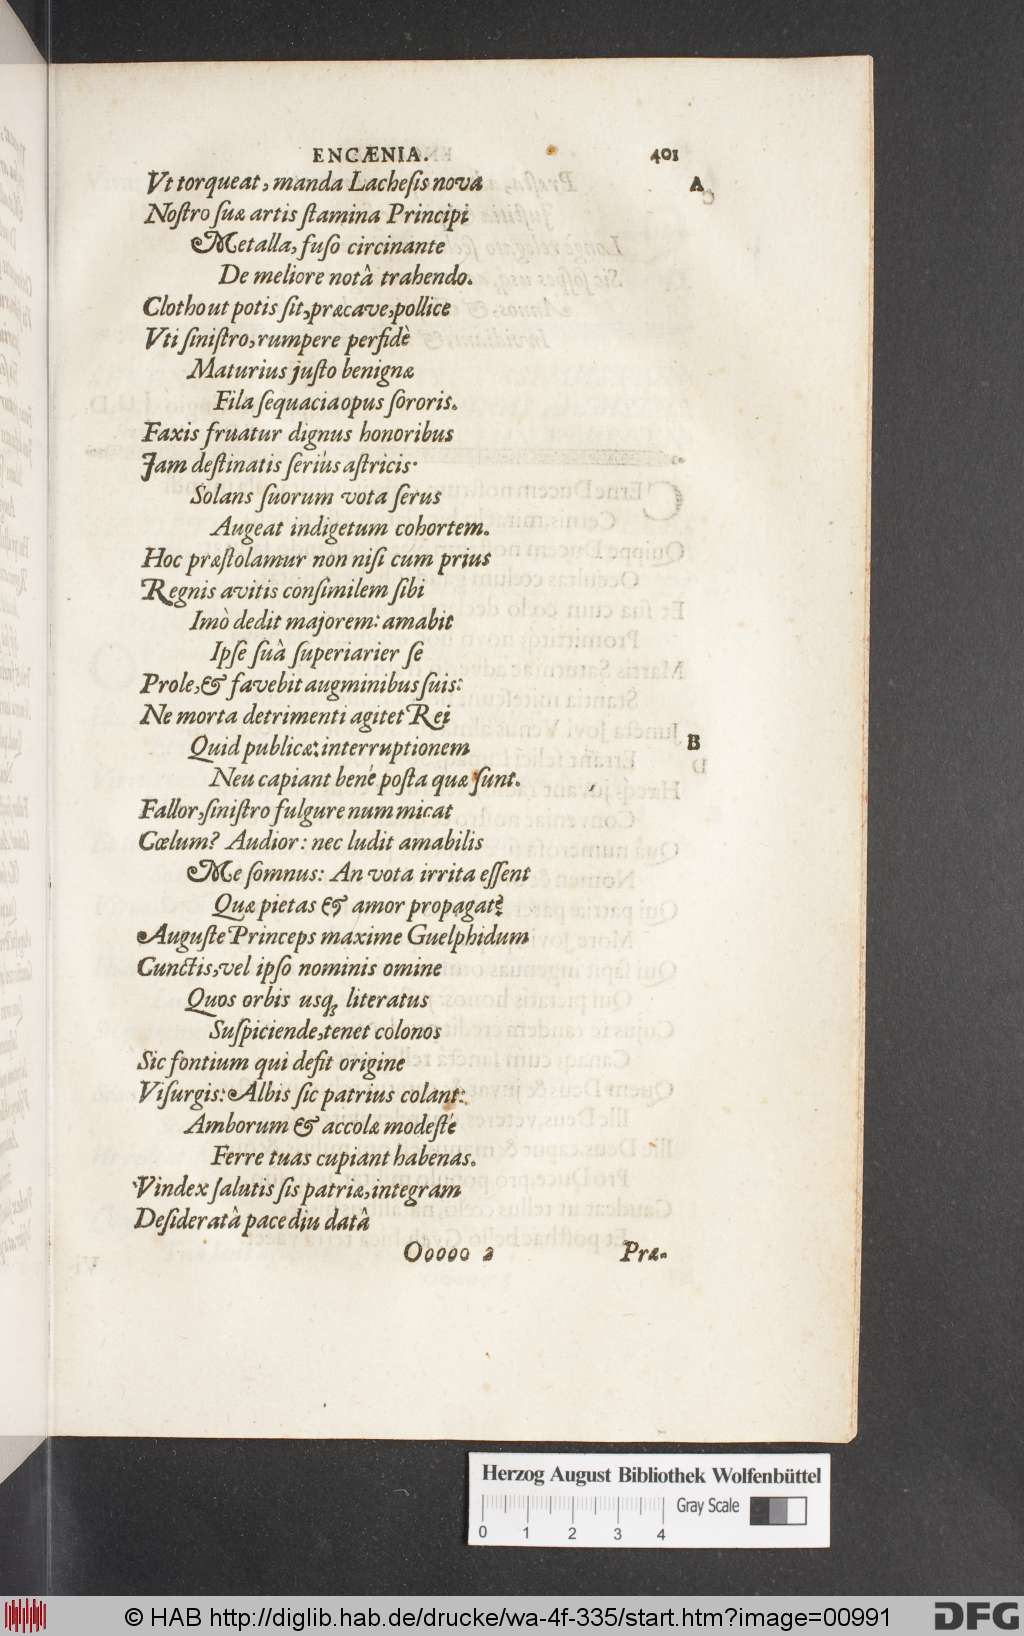 ENCÆNIA. 401
Vt torqueat, manda Lachesis nova A
Nostro suæ artis stamina Principi
Metalla, fuso circinante
De meliore notâ trahendo.
Clotho ut potis sit, præcave, pollice
Vti sinistro, rumpere perfidè
Maturius justo benignæ
Fila sequacia opus sororis.
Faxis fruatur dignus honoribus
Jam destinatis seriùs astricis.
Solans suorum vota serus
Augeat indigetum cohortem.
Hoc præstolamur non nisi cum prius
Regnis avitis consimilem sibi
Imò dedit majorem: amabit
Ipse suâ superiarier se
Prole, & favebit augminibus suis:
Ne morta detrimenti agitet Rei
Quid publicæ: interruptionem B
Neu capiant benè posta quæ sunt.
Fallor, sinistro fulgure num micat
Cœlum? Audior: nec ludit amabilis
Me somnus: An vota irrita essent
Quæ pietas & amor propagat?
Auguste Princeps maxime Guelphidum
Cunctis, vel ipso nominis omine
Quos orbis usq; literatus
Suspiciende, tenet colonos
Sic fontium qui desit origine
Visurgis: Albis sic patrius colant:
Amborum & accolæ modestè
Ferre tuas cupiant habenas.
Vindex salutis sis patriæ, integram
Desideratâ pace diu datâ
Ooooo 2 Præ-
Herzog August Bibliothek Wolfenbüttel
Gray Scale
0 1 2 3 4
© HAB http://diglib.hab.de/drucke/wa-4f-335/start.htm?image=00991 DFG